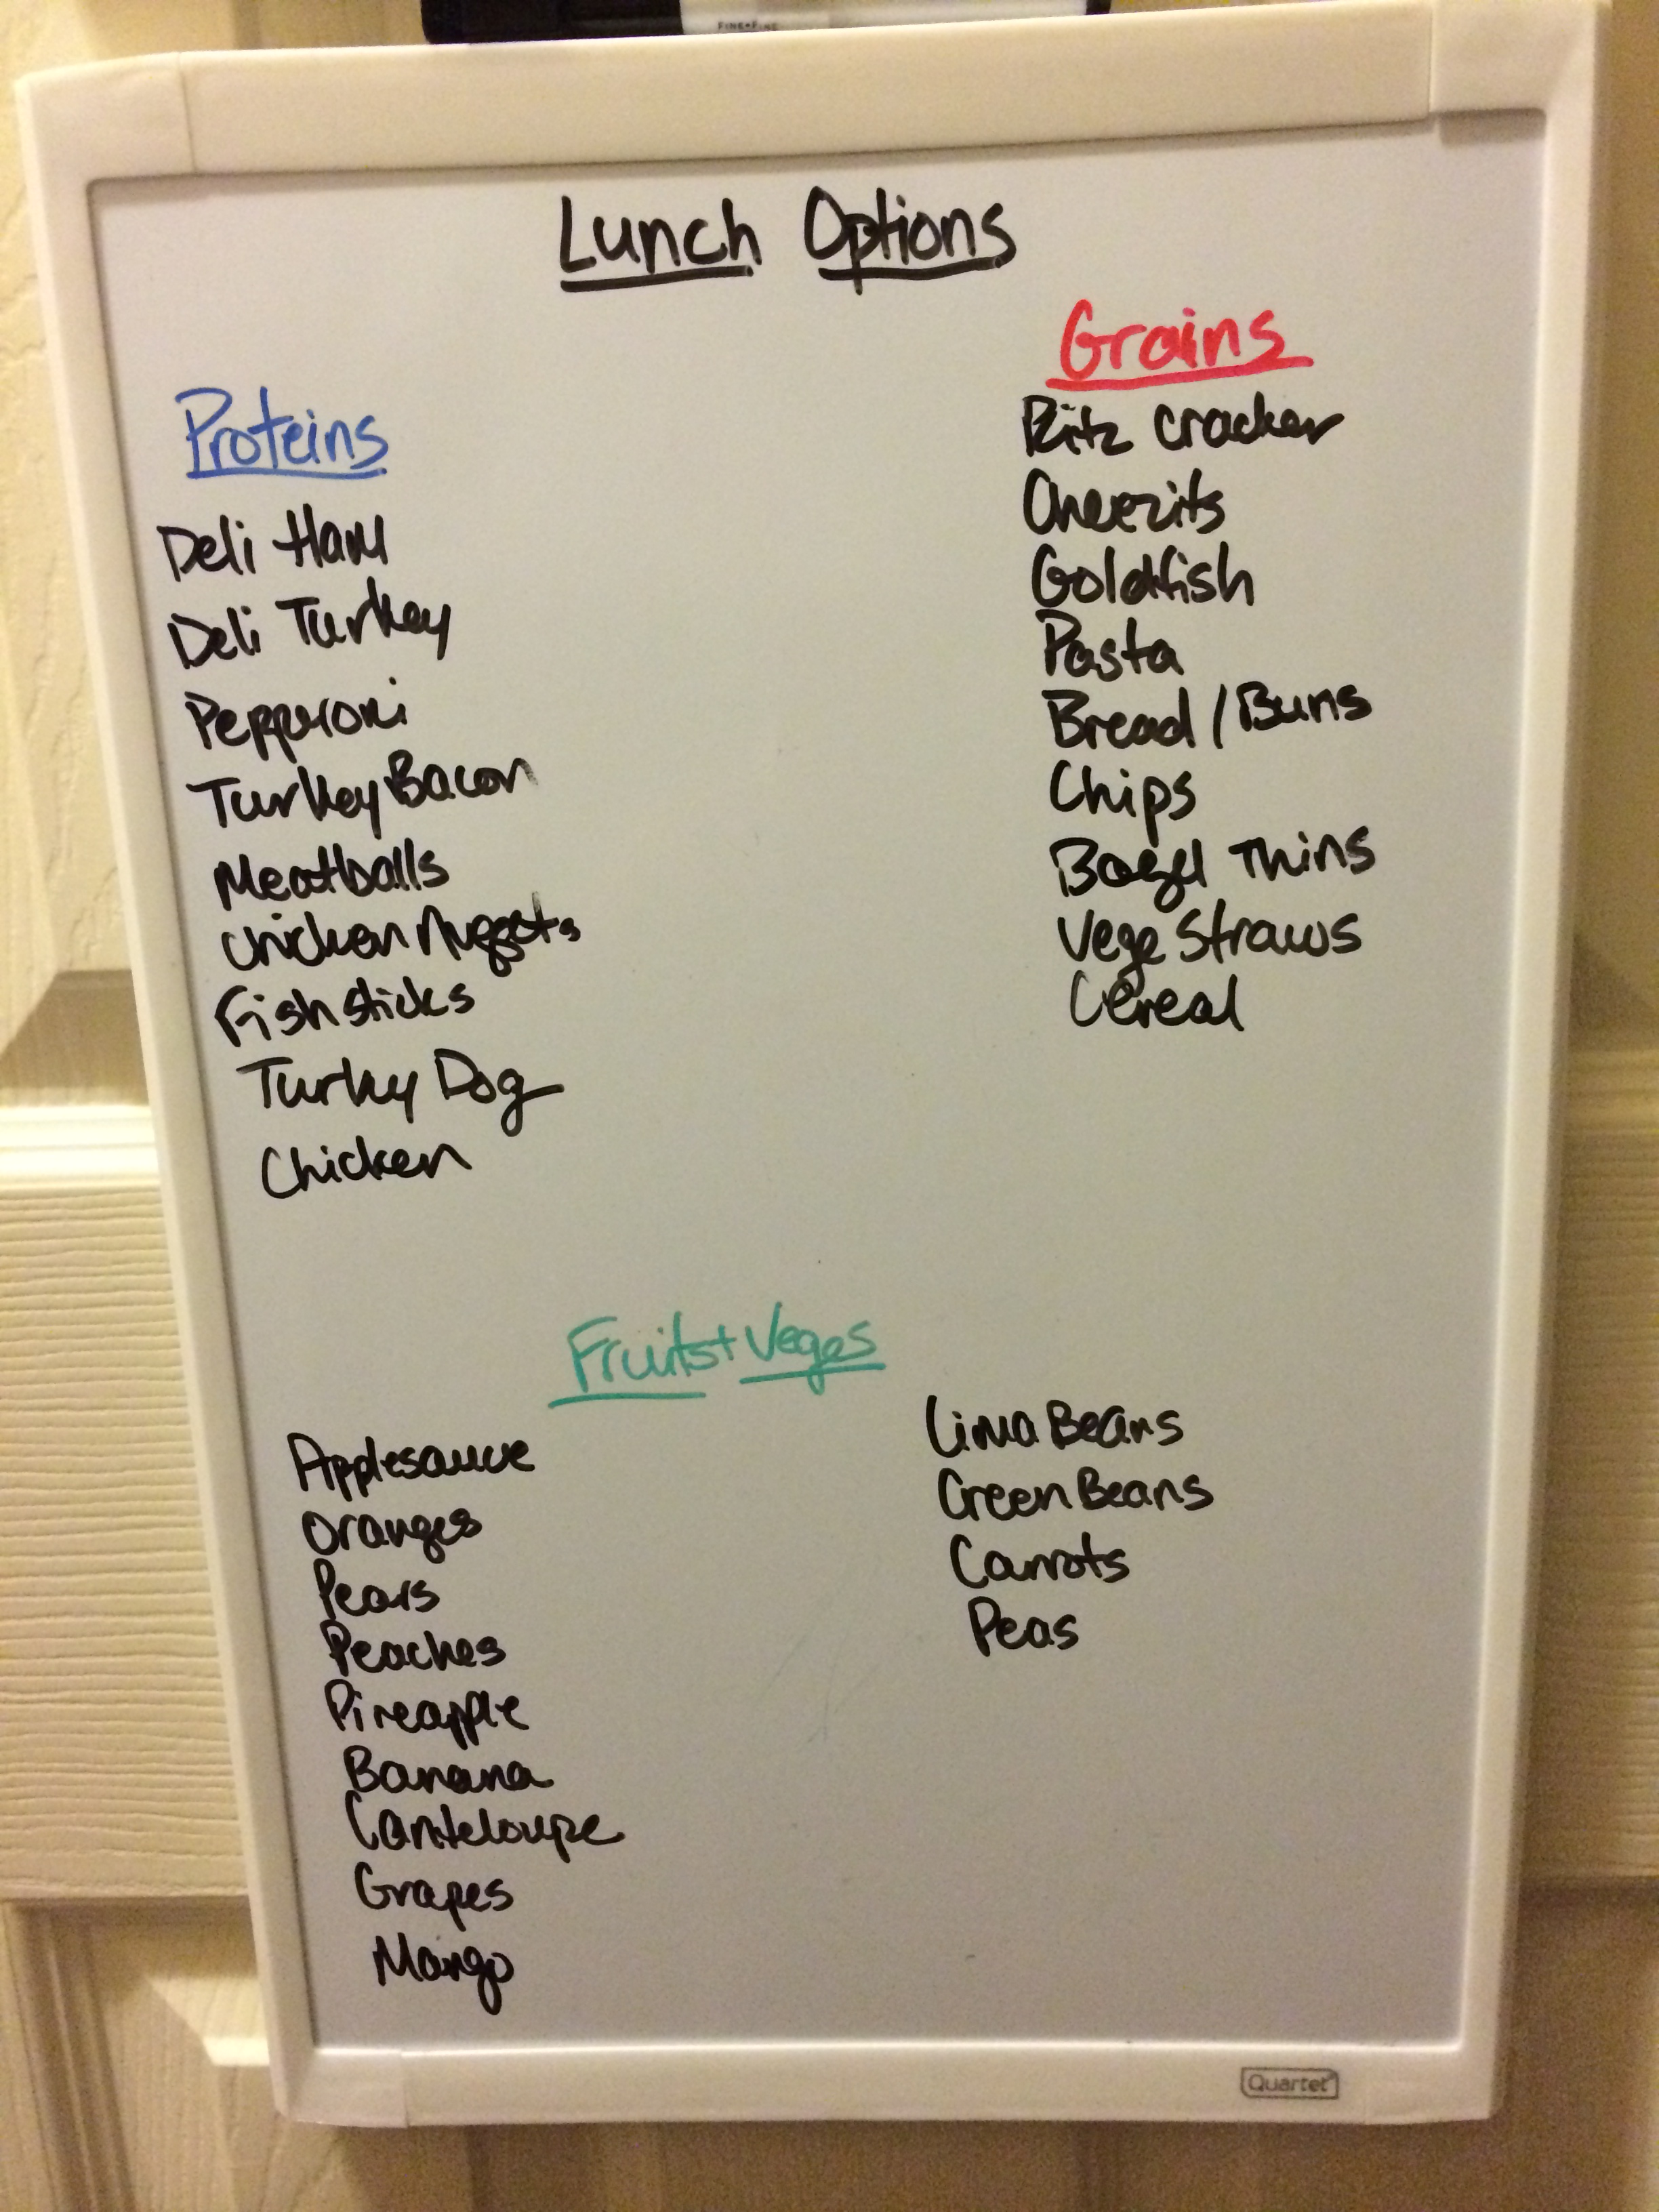 Lunch Options
Proteins
Deli Ham
Deli Turkey
Pepperoni
Turkey Bacon
Meatballs
Chicken Nuggets
Fish sticks
Turky Dog
Chicken
Grains
Ritz cracker
Cheezits
Goldfish
Pasta
Bread / Buns
Chips
Bagel Thins
Vege Straws
Cereal
Fruits + Veges
Applesauce
Oranges
Pears
Peaches
Pineapple
Banana
Canteloupe
Grapes
Mango
Lima Beans
Green Beans
Carrots
Peas
Quartet